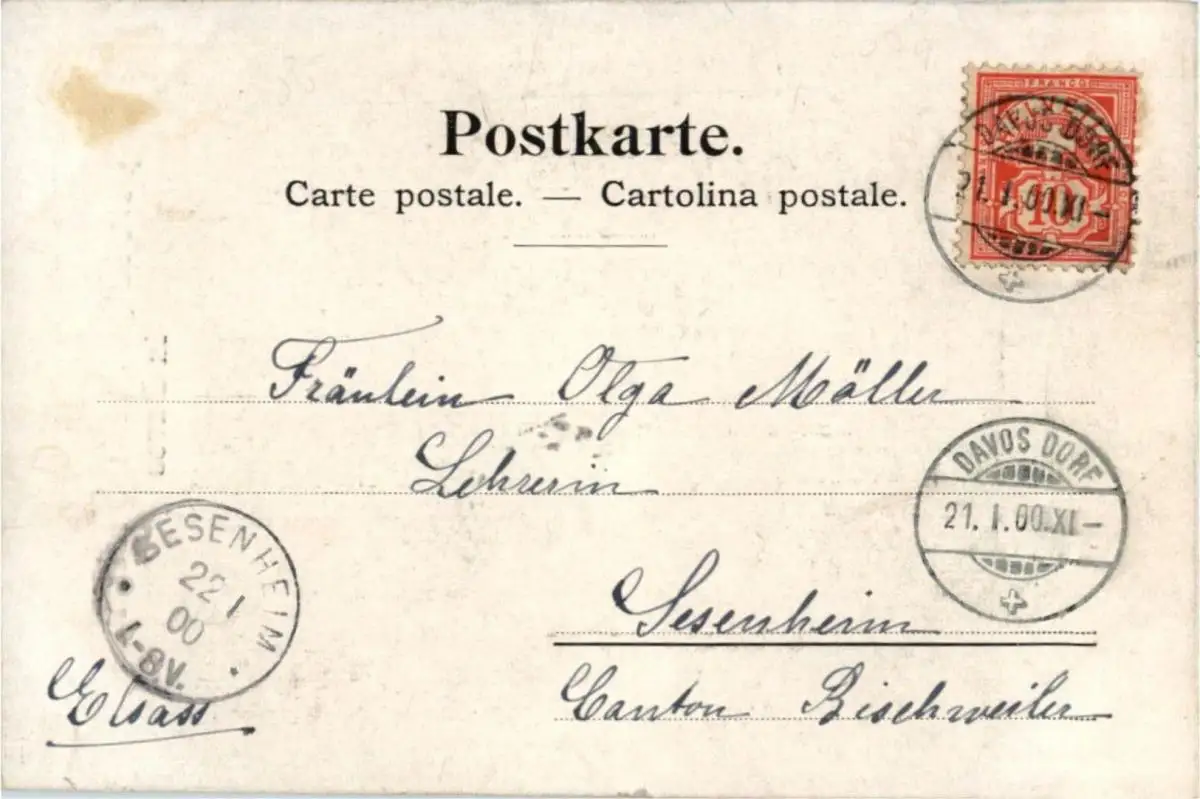 Postkarte.
Carte postale. — Cartolina postale.
FRANCO
10
DAVOS DORF
21. I. 00. XI –
Fräulein Olga Möller
Lehrerin
DAVOS DORF
21. I. 00. XI –
SESENHEIM
22 1
00
1-8V.
Sesenheim
Elsass
Canton Bischweiler